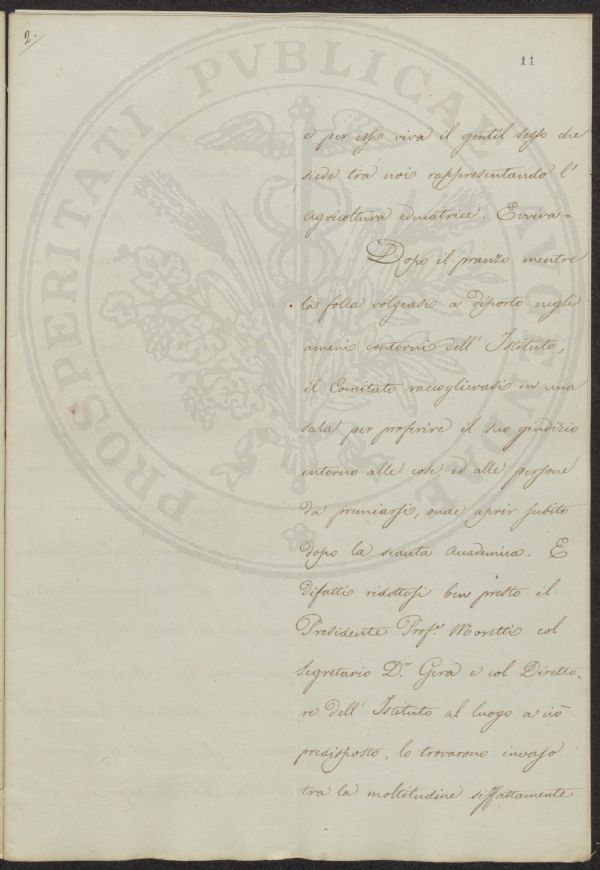 2.
11
e per essi viva il gentil sesso che
siede tra noi rappresentando l'
agricoltura educatrice. Evviva –
Dopo il pranzo mentre
la folla volgeasi a diporto negli
ameni contorni dell' Istituto,
il Comitato raccoglievasi in una
sala per proferire il suo giudizio
intorno alle cose ed alle persone
da premiarsi, onde aprir subito
dopo la seduta Academica. E
difatti ridottosi ben presto il
Presidente Prof.r Moretti col
segretario D.r Gera e col Diretto-
re dell' Istituto al luogo a ciò
predisposto, lo trovarono invaso
tra la moltitudine siffattamente
PROSPERITATI PVBLICAE AVGENDAE